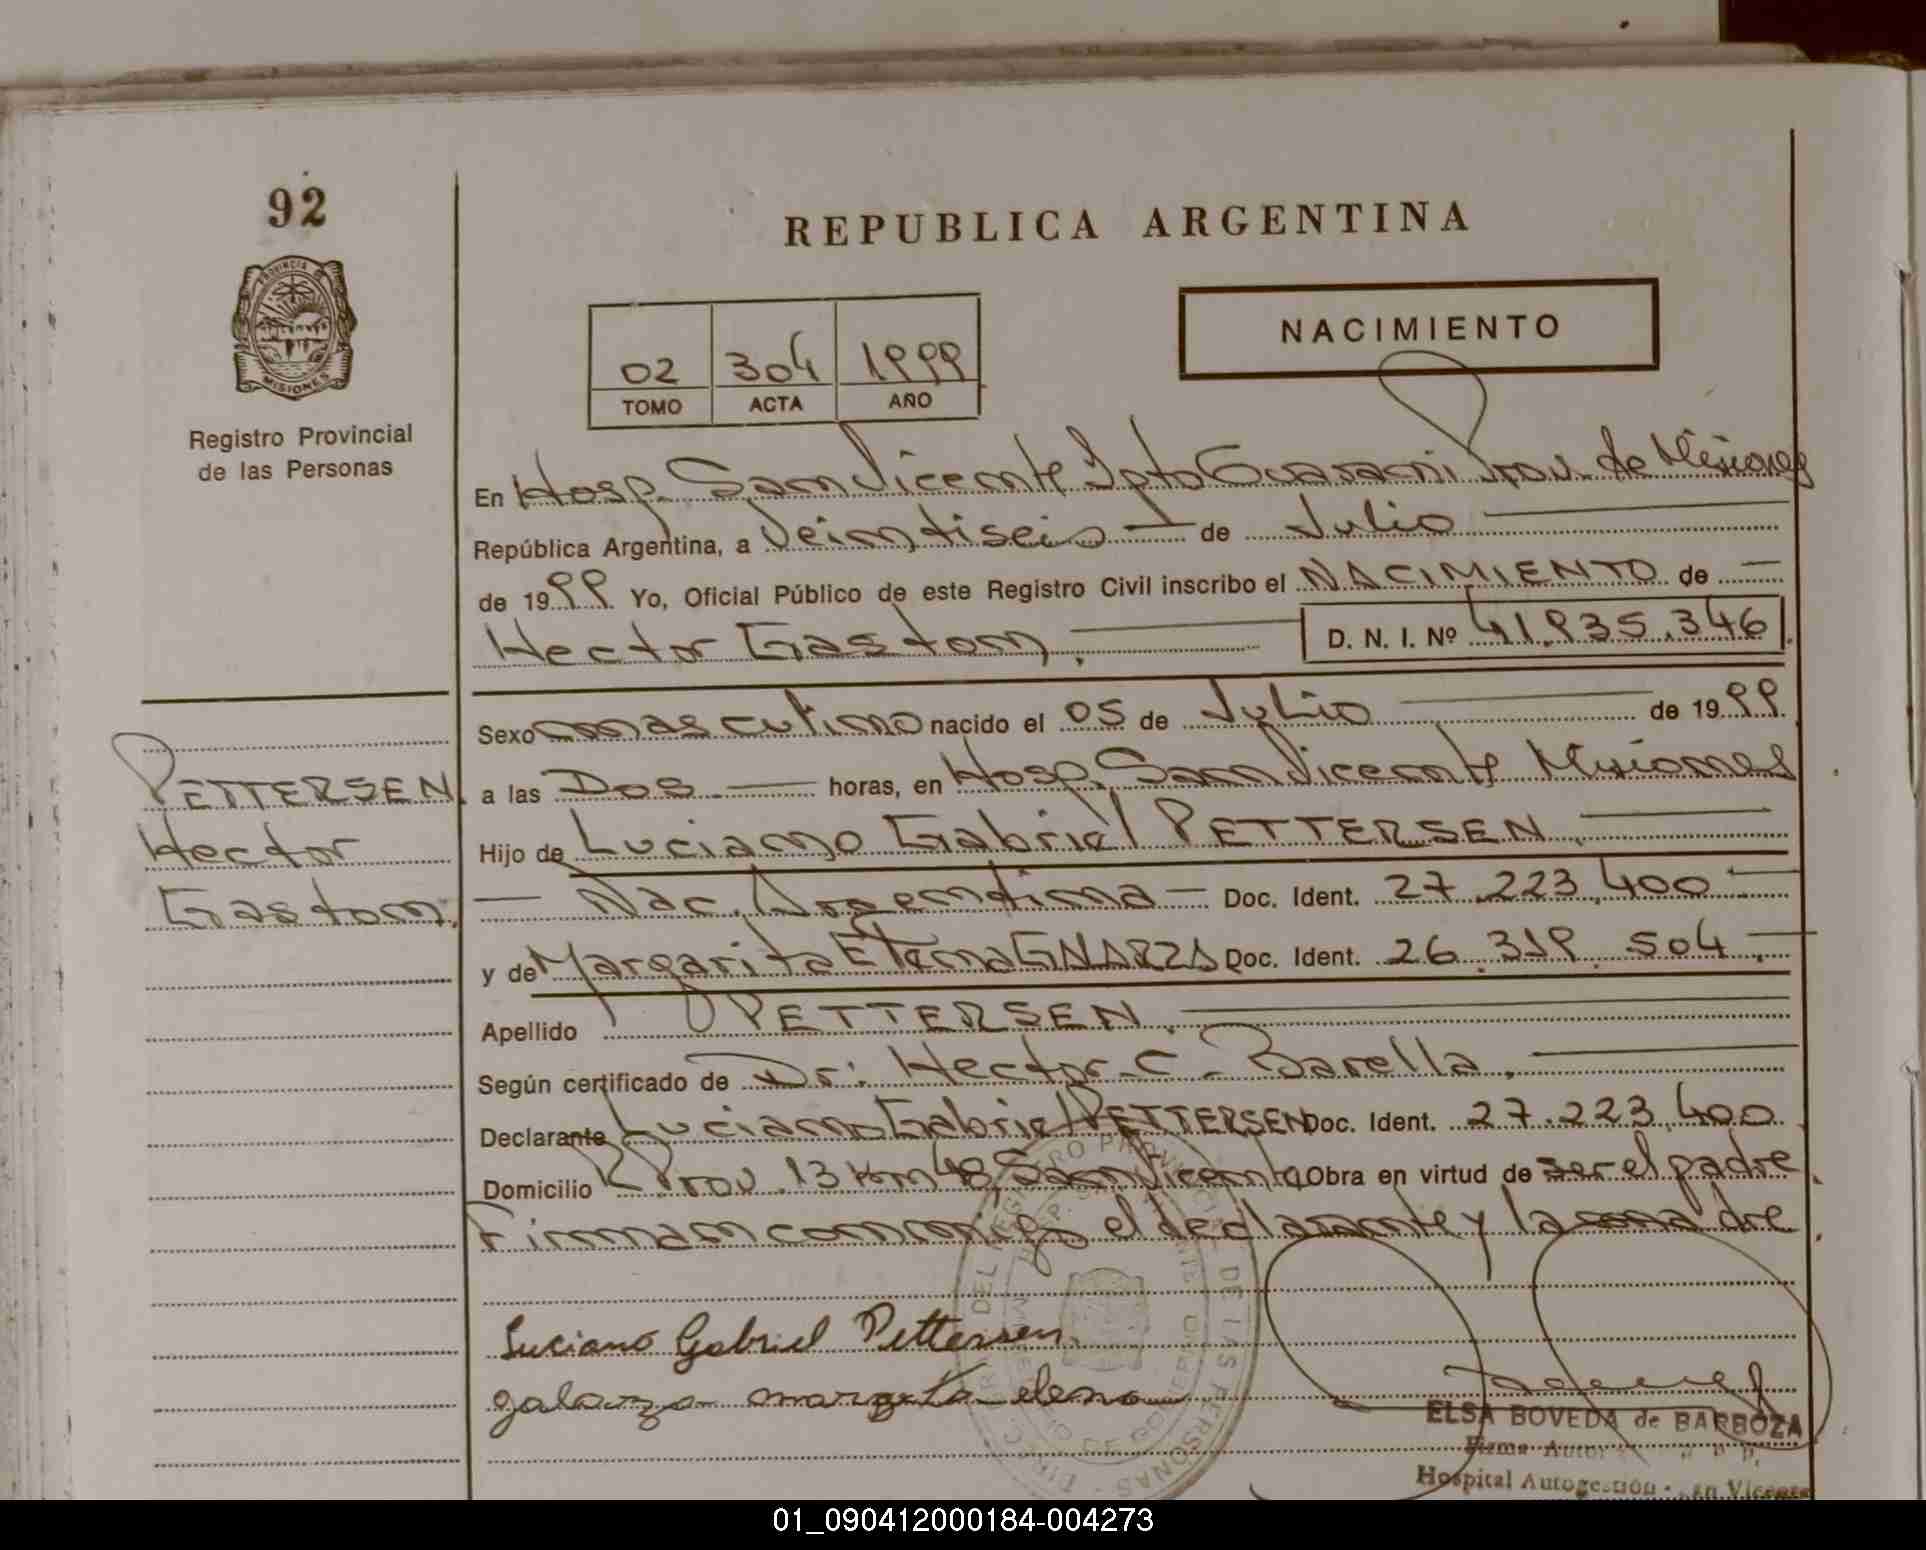 92
REPUBLICA ARGENTINA
PROVINCIA DE
MISIONES
Registro Provincial
de las Personas
02 304 1999
TOMO ACTA AÑO
NACIMIENTO
En Hosp. San Vicente Dpto Guarani Prov. de Misiones
República Argentina, a Veintiseis — de Julio
de 1999 Yo, Oficial Público de este Registro Civil inscribo el NACIMIENTO de —
Hector Gaston. D. N. I. Nº 41.935.346
Sexo masculino nacido el 05 de Julio de 1999
a las Dos — horas, en Hosp. San Vicente Misiones
PETTERSEN
Hector
Gaston.
Hijo de Luciano Gabriel PETTERSEN.
— Nac. Argentina — Doc. Ident. 27.223.400
y de Margarita Elena GALARZA Doc. Ident. 26.319.504
Apellido PETTERSEN.
Según certificado de Dr: Hector C. Barella.
Declarante Luciano Gabriel PETTERSEN Doc. Ident. 27.223.400
Domicilio R Prov. 13 Km 48 San Vicente Obra en virtud de ser el padre
Firman conmigo el declarante y la madre
Luciano Gabriel Pettersen
galarza margarita elena
ELSA BOVEDA de BARBOZA
Firma Autor
Hospital Autogestión
01_090412000184-004273